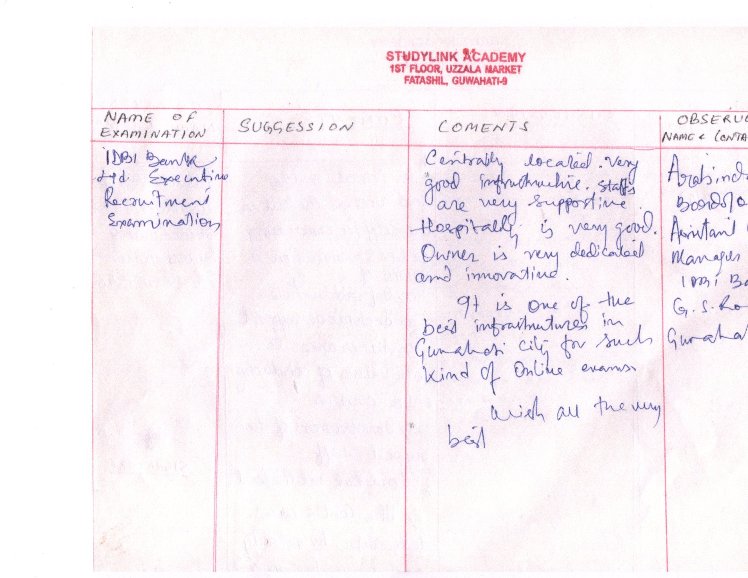 STUDYLINK ACADEMY
1ST FLOOR, UZZALA MARKET
FATASHIL, GUWAHATI-9
NAME OF
EXAMINATION
SUGGESSION
COMENTS
OBSERVE
NAME & CONTA
IDBI Bank
Ltd. Executive
Recruitment
Examination
Centrally located. Very
good infrastructure. Staffs
are very supportive.
Hospitally is very good.
Owner is very dedicated
and innovative.
It is one of the
best infrastrutures in
Guwahati City for such
kind of Online exams
Wish all the very
best
Arabinda
Assistant
Manager
IDBI Ba
G. S. Ro
Guwahat